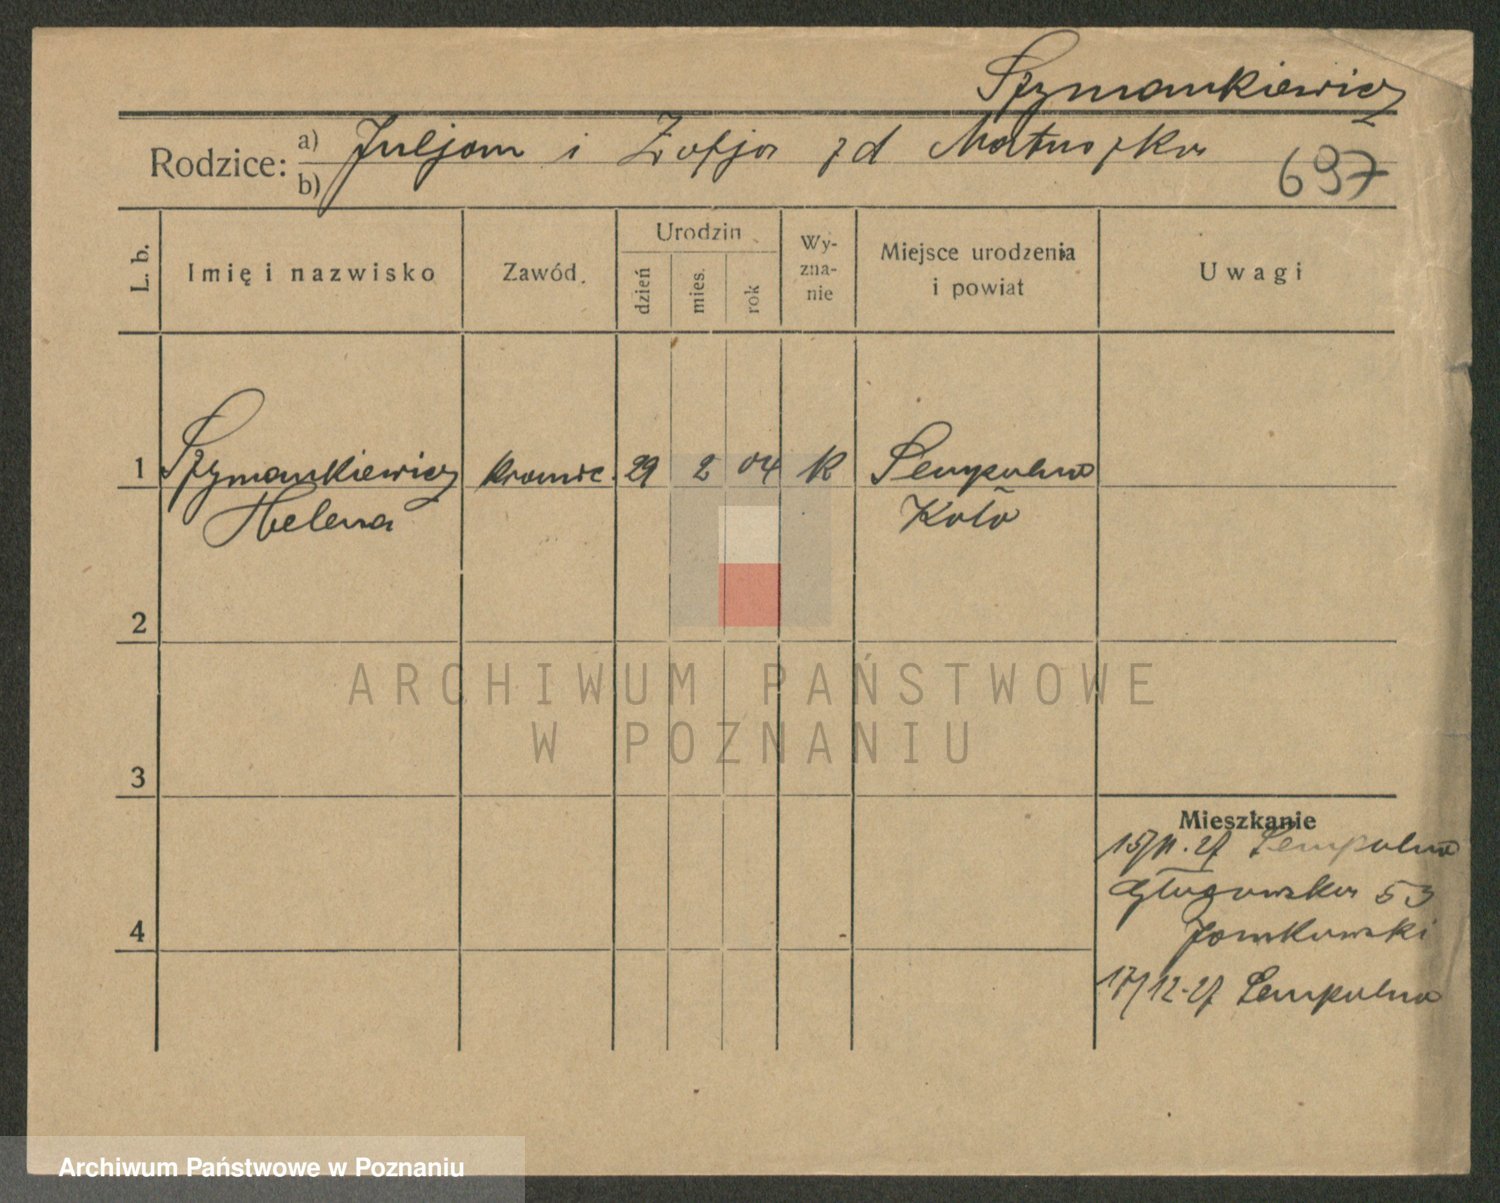 Szymankiewicz
Rodzice: a) Juljan i Zofja zd Matuszka
b)
697
L. b.
Imię i nazwisko
Zawód.
Urodzin
dzień
mies.
rok
Wy-
zna-
nie
Miejsce urodzenia
i powiat
Uwagi
1 Szymankiewicz krawic. 29 2 04 k Sempolno
Helena Koło
2
ARCHIWUM PAŃSTWOWE
W POZNANIU
3
Mieszkanie
15/11.27 Sempolno
53
4
17/12-27 Sempolno
Archiwum Państwowe w Poznaniu